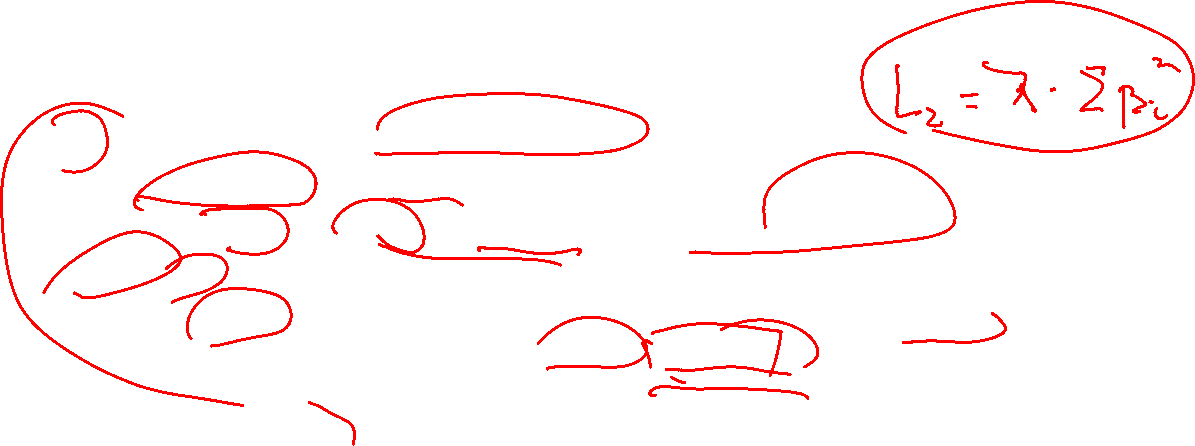 L₂ = λ · Σ βᵢ²